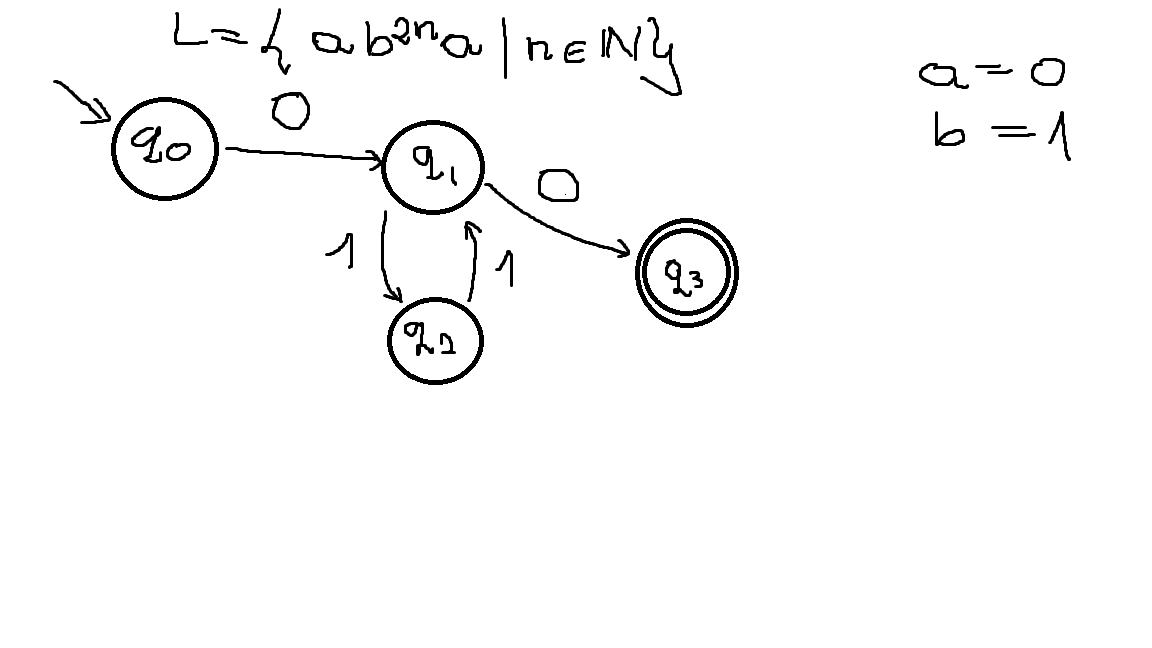 L = { ab²ⁿa | n ∈ ℕ }
a = 0
b = 1
0
q₀
q₁
0
1
1
q₂
q₃